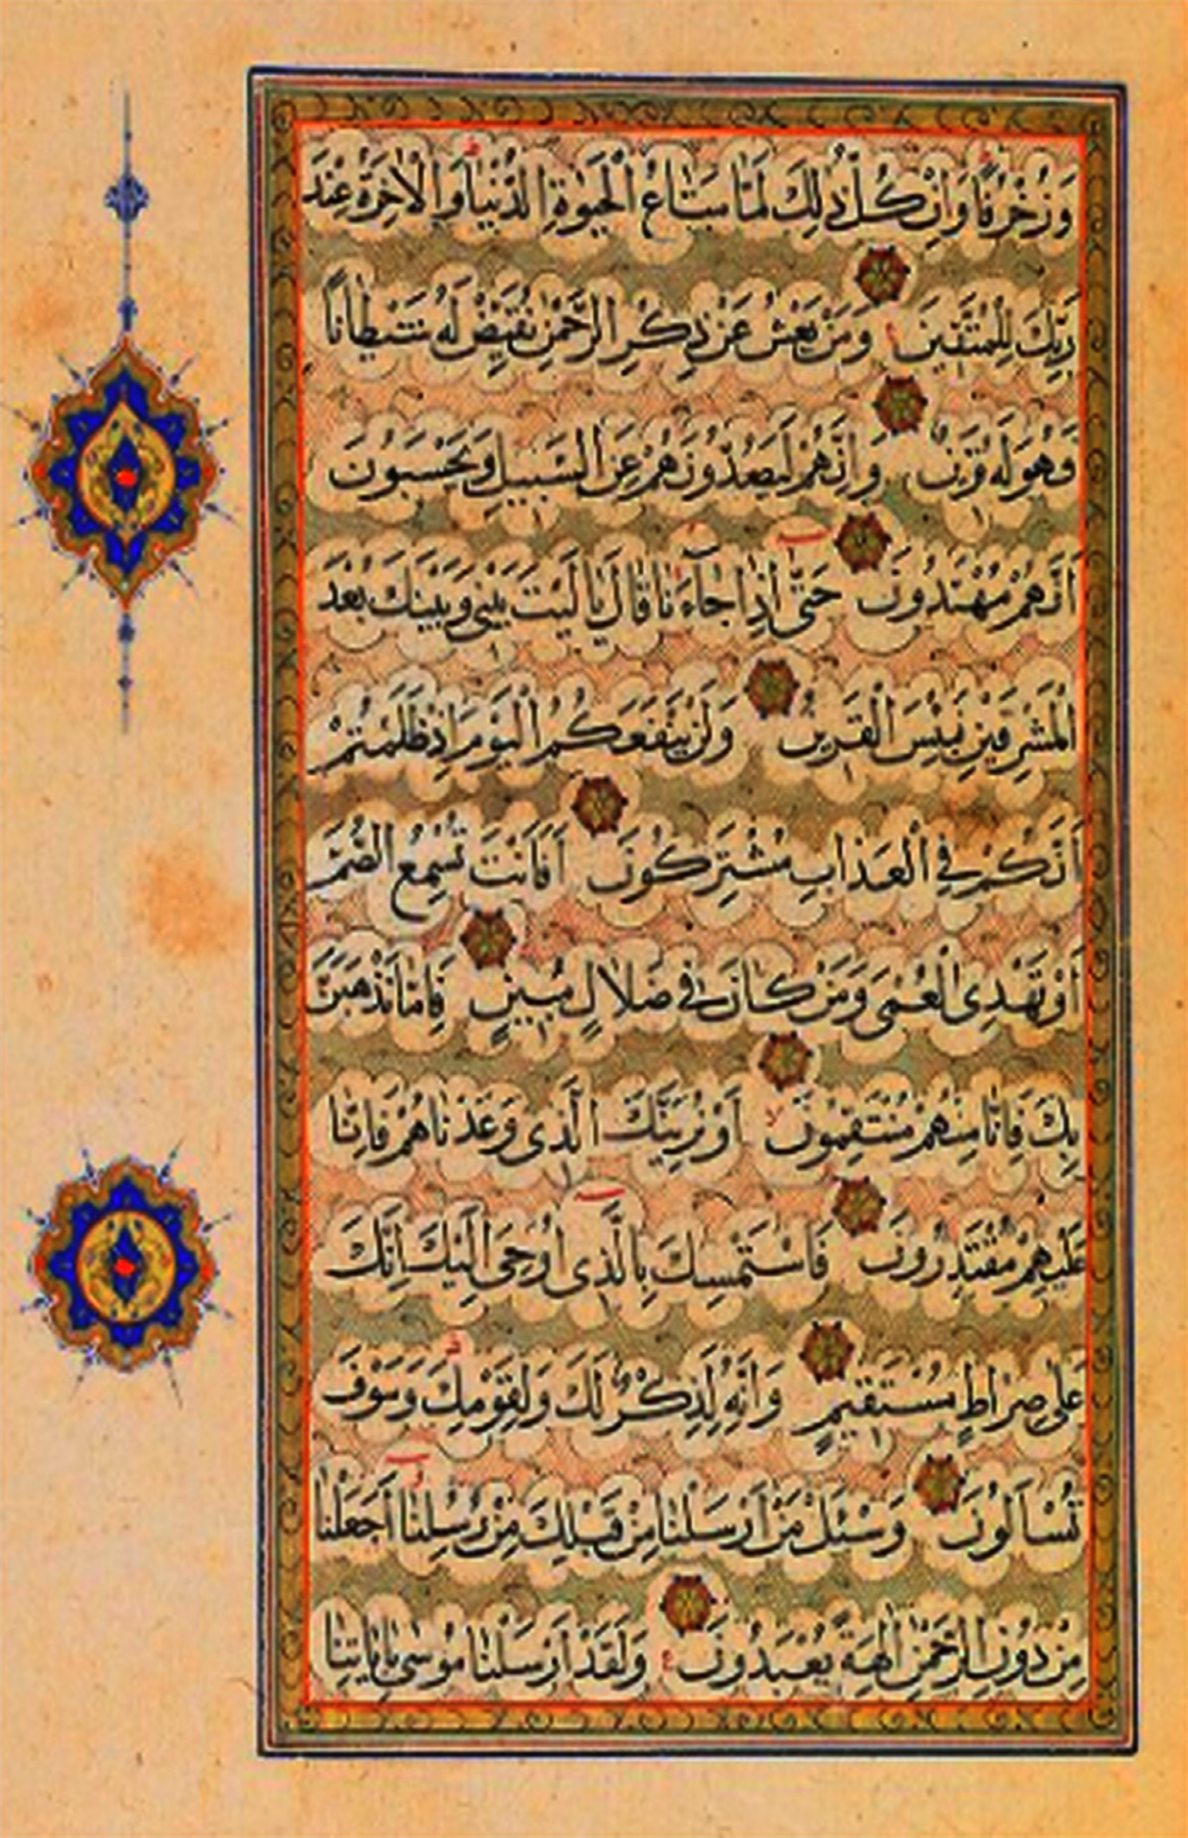 وَزُخْرُفًا وَاِنْ كُلُّ ذٰلِكَ لَمَّا مَتَاعُ الْحَيٰوةِ الدُّنْيَا وَالْاٰخِرَةُ عِنْدَ
رَبِّكَ لِلْمُتَّقِينَ وَمَنْ يَعْشُ عَنْ ذِكْرِ الرَّحْمٰنِ نُقَيِّضْ لَهُ شَيْطَانًا
فَهُوَ لَهُ قَرِينٌ وَاِنَّهُمْ لَيَصُدُّونَهُمْ عَنِ السَّبِيلِ وَيَحْسَبُونَ
اَنَّهُمْ مُهْتَدُونَ حَتّٰى اِذَا جَآءَنَا قَالَ يَا لَيْتَ بَيْنِى وَبَيْنَكَ بُعْدَ
الْمَشْرِقَيْنِ فَبِئْسَ الْقَرِينُ وَلَنْ يَنْفَعَكُمُ الْيَوْمَ اِذْ ظَلَمْتُمْ
اَنَّكُمْ فِى الْعَذَابِ مُشْتَرِكُونَ اَفَاَنْتَ تُسْمِعُ الصُّمَّ
اَوْ تَهْدِى الْعُمْىَ وَمَنْ كَانَ فِى ضَلَالٍ مُبِينٍ فَاِمَّا نَذْهَبَنَّ
بِكَ فَاِنَّا مِنْهُمْ مُنْتَقِمُونَ اَوْ نُرِيَنَّكَ الَّذِى وَعَدْنَاهُمْ فَاِنَّا
عَلَيْهِمْ مُقْتَدِرُونَ فَاسْتَمْسِكْ بِالَّذِى اُوحِىَ اِلَيْكَ اِنَّكَ
عَلٰى صِرَاطٍ مُسْتَقِيمٍ وَاِنَّهُ لَذِكْرٌ لَكَ وَلِقَوْمِكَ وَسَوْفَ
تُسْاَلُونَ وَسْئَلْ مَنْ اَرْسَلْنَا مِنْ قَبْلِكَ مِنْ رُسُلِنَا اَجَعَلْنَا
مِنْ دُونِ الرَّحْمٰنِ اٰلِهَةً يُعْبَدُونَ وَلَقَدْ اَرْسَلْنَا مُوسٰى بِاٰيَاتِنَا